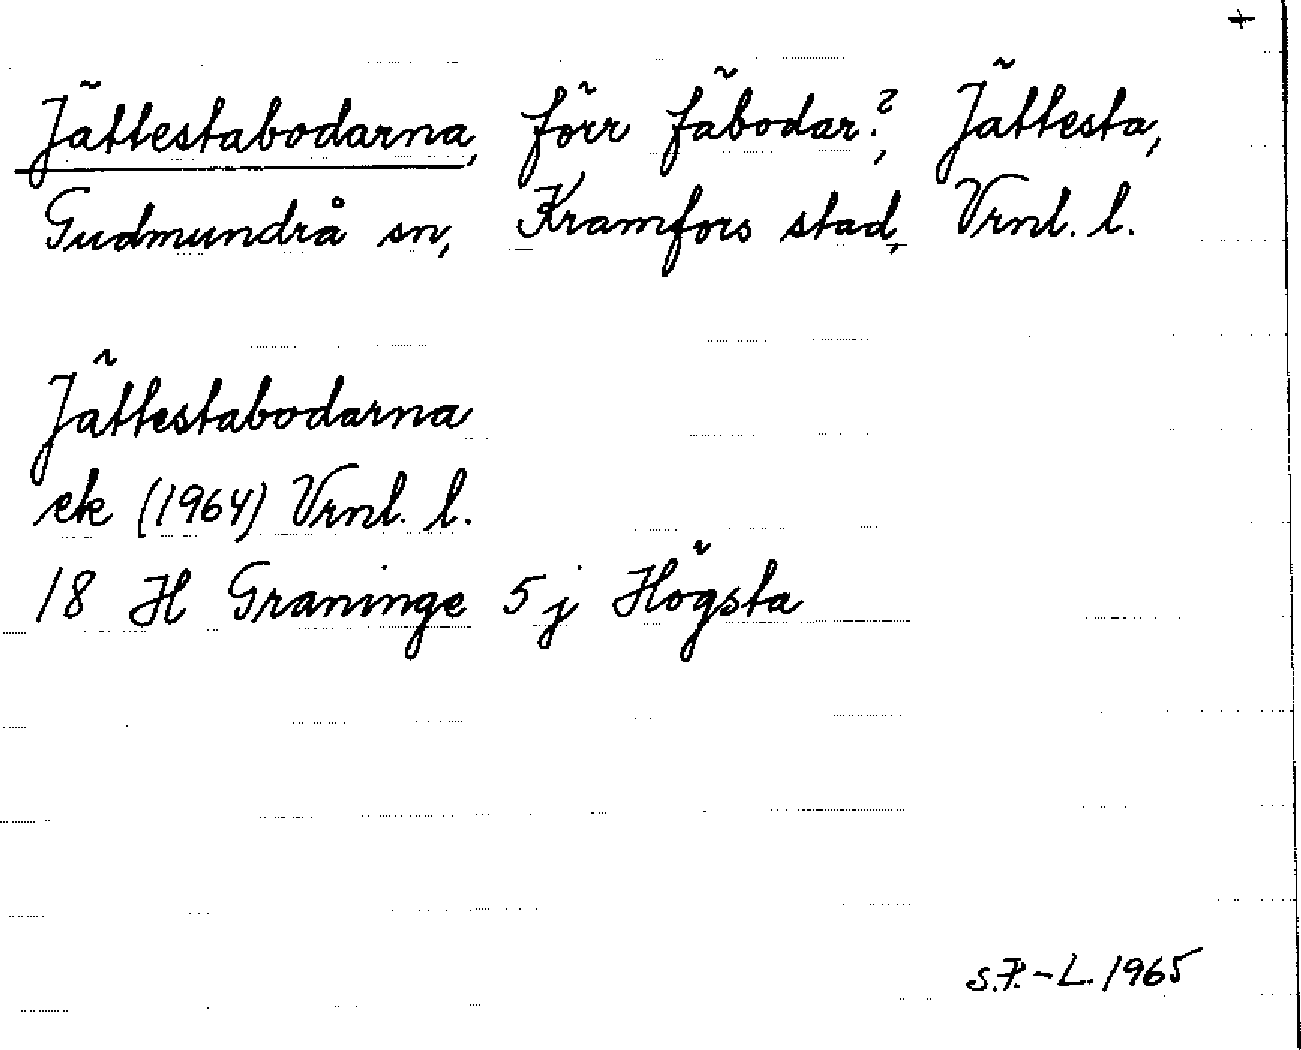 +
Jättestabodarna, förr fäbodar?, Jättesta,
Gudmundrå sn, Kramfors stad, Vrnl. l.
Jättestabodarna
ek (1964) Vrnl. l.
18 H Graninge 5 j Högsta
S.P.-L. 1965